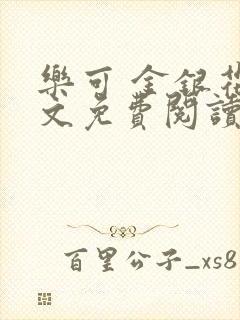 樂可 金銀花
文免費閱讀
百里公子_xs8